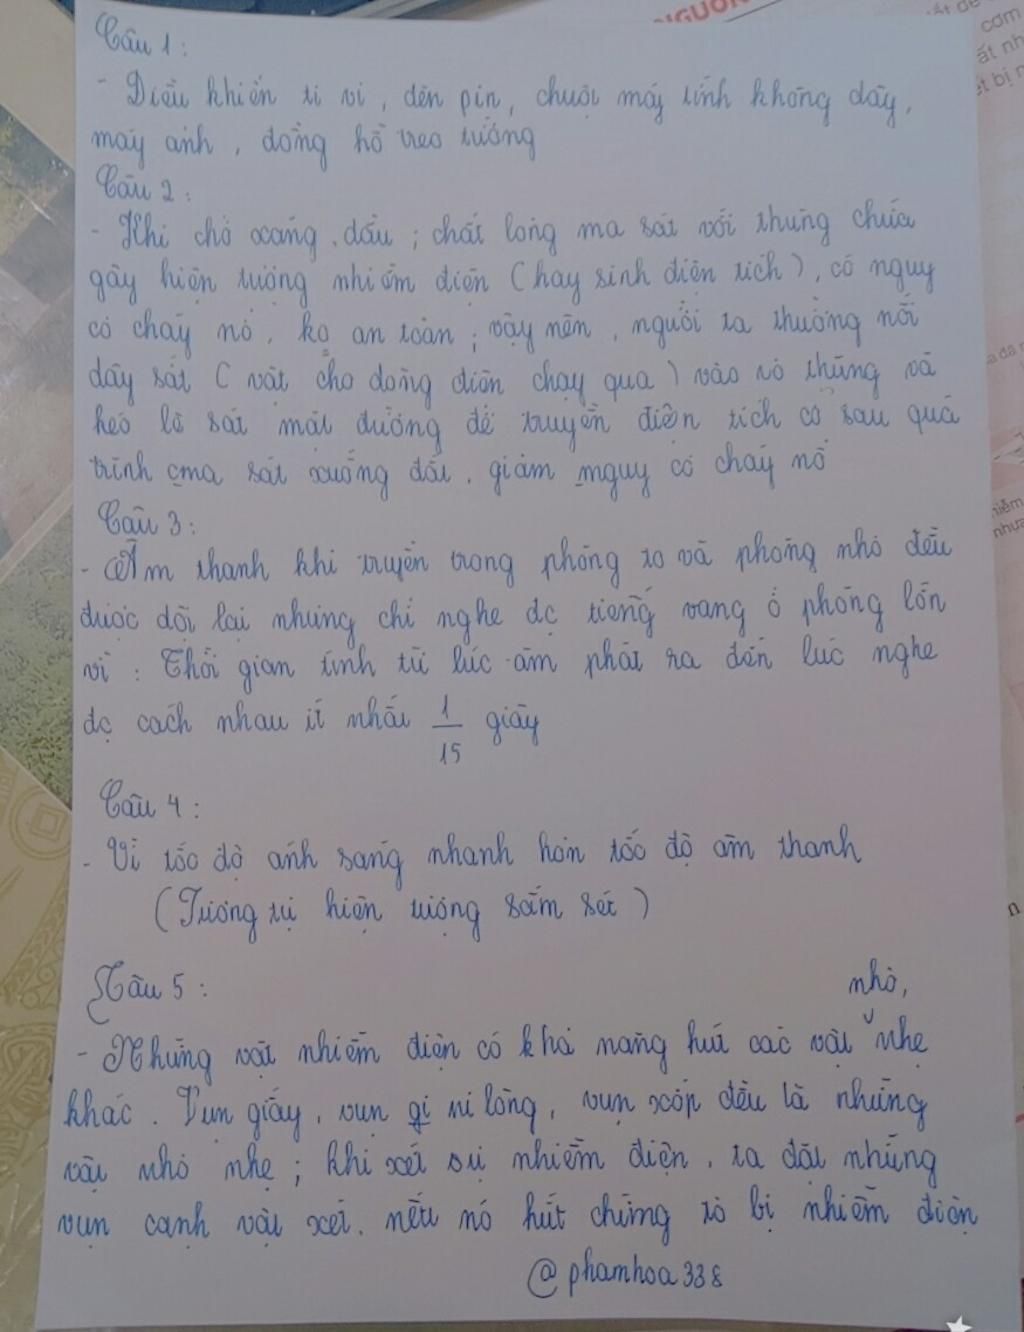 NGUỒN
cơm
ất nh
Câu 1 :
- Điều khiển ti vi , đèn pin , chuột máy tính không dây ,
máy ảnh , đồng hồ treo tường
Câu 2 :
- Khi chở xăng , dầu ; chất lỏng ma sát với thùng chứa
gây hiện tượng nhiễm điện ( hay sinh điện tích ) , có nguy
cơ cháy nổ , ko an toàn ; vậy nên , người ta thường nối
dây sắt ( vật cho dòng điện chạy qua ) vào vỏ thùng và
kéo lê sát mặt đường để truyền điện tích có sau quá
trình cma sát xuống đất , giảm nguy cơ cháy nổ
Câu 3 :
- Âm thanh khi truyền trong phòng to và phòng nhỏ đều
được dội lại nhưng chỉ nghe đc tiếng vang ở phòng lớn
vì : Thời gian tính từ lúc âm phát ra đến lúc nghe
đc cách nhau ít nhất 1/15 giây
Câu 4 :
- Vì tốc độ ánh sáng nhanh hơn tốc độ âm thanh
( Tương tự hiện tượng sấm sét )
Câu 5 :
- Những vật nhiễm điện có khả năng hút các vật nhỏ, nhẹ
khác . Vụn giấy , vụn gi ni lông , vụn xốp đều là những
vật nhỏ nhẹ ; khi xét sự nhiễm điện , ta đặt những
vụn cạnh vật xét . nếu nó hút chứng tỏ bị nhiễm điện
@phamhoa338